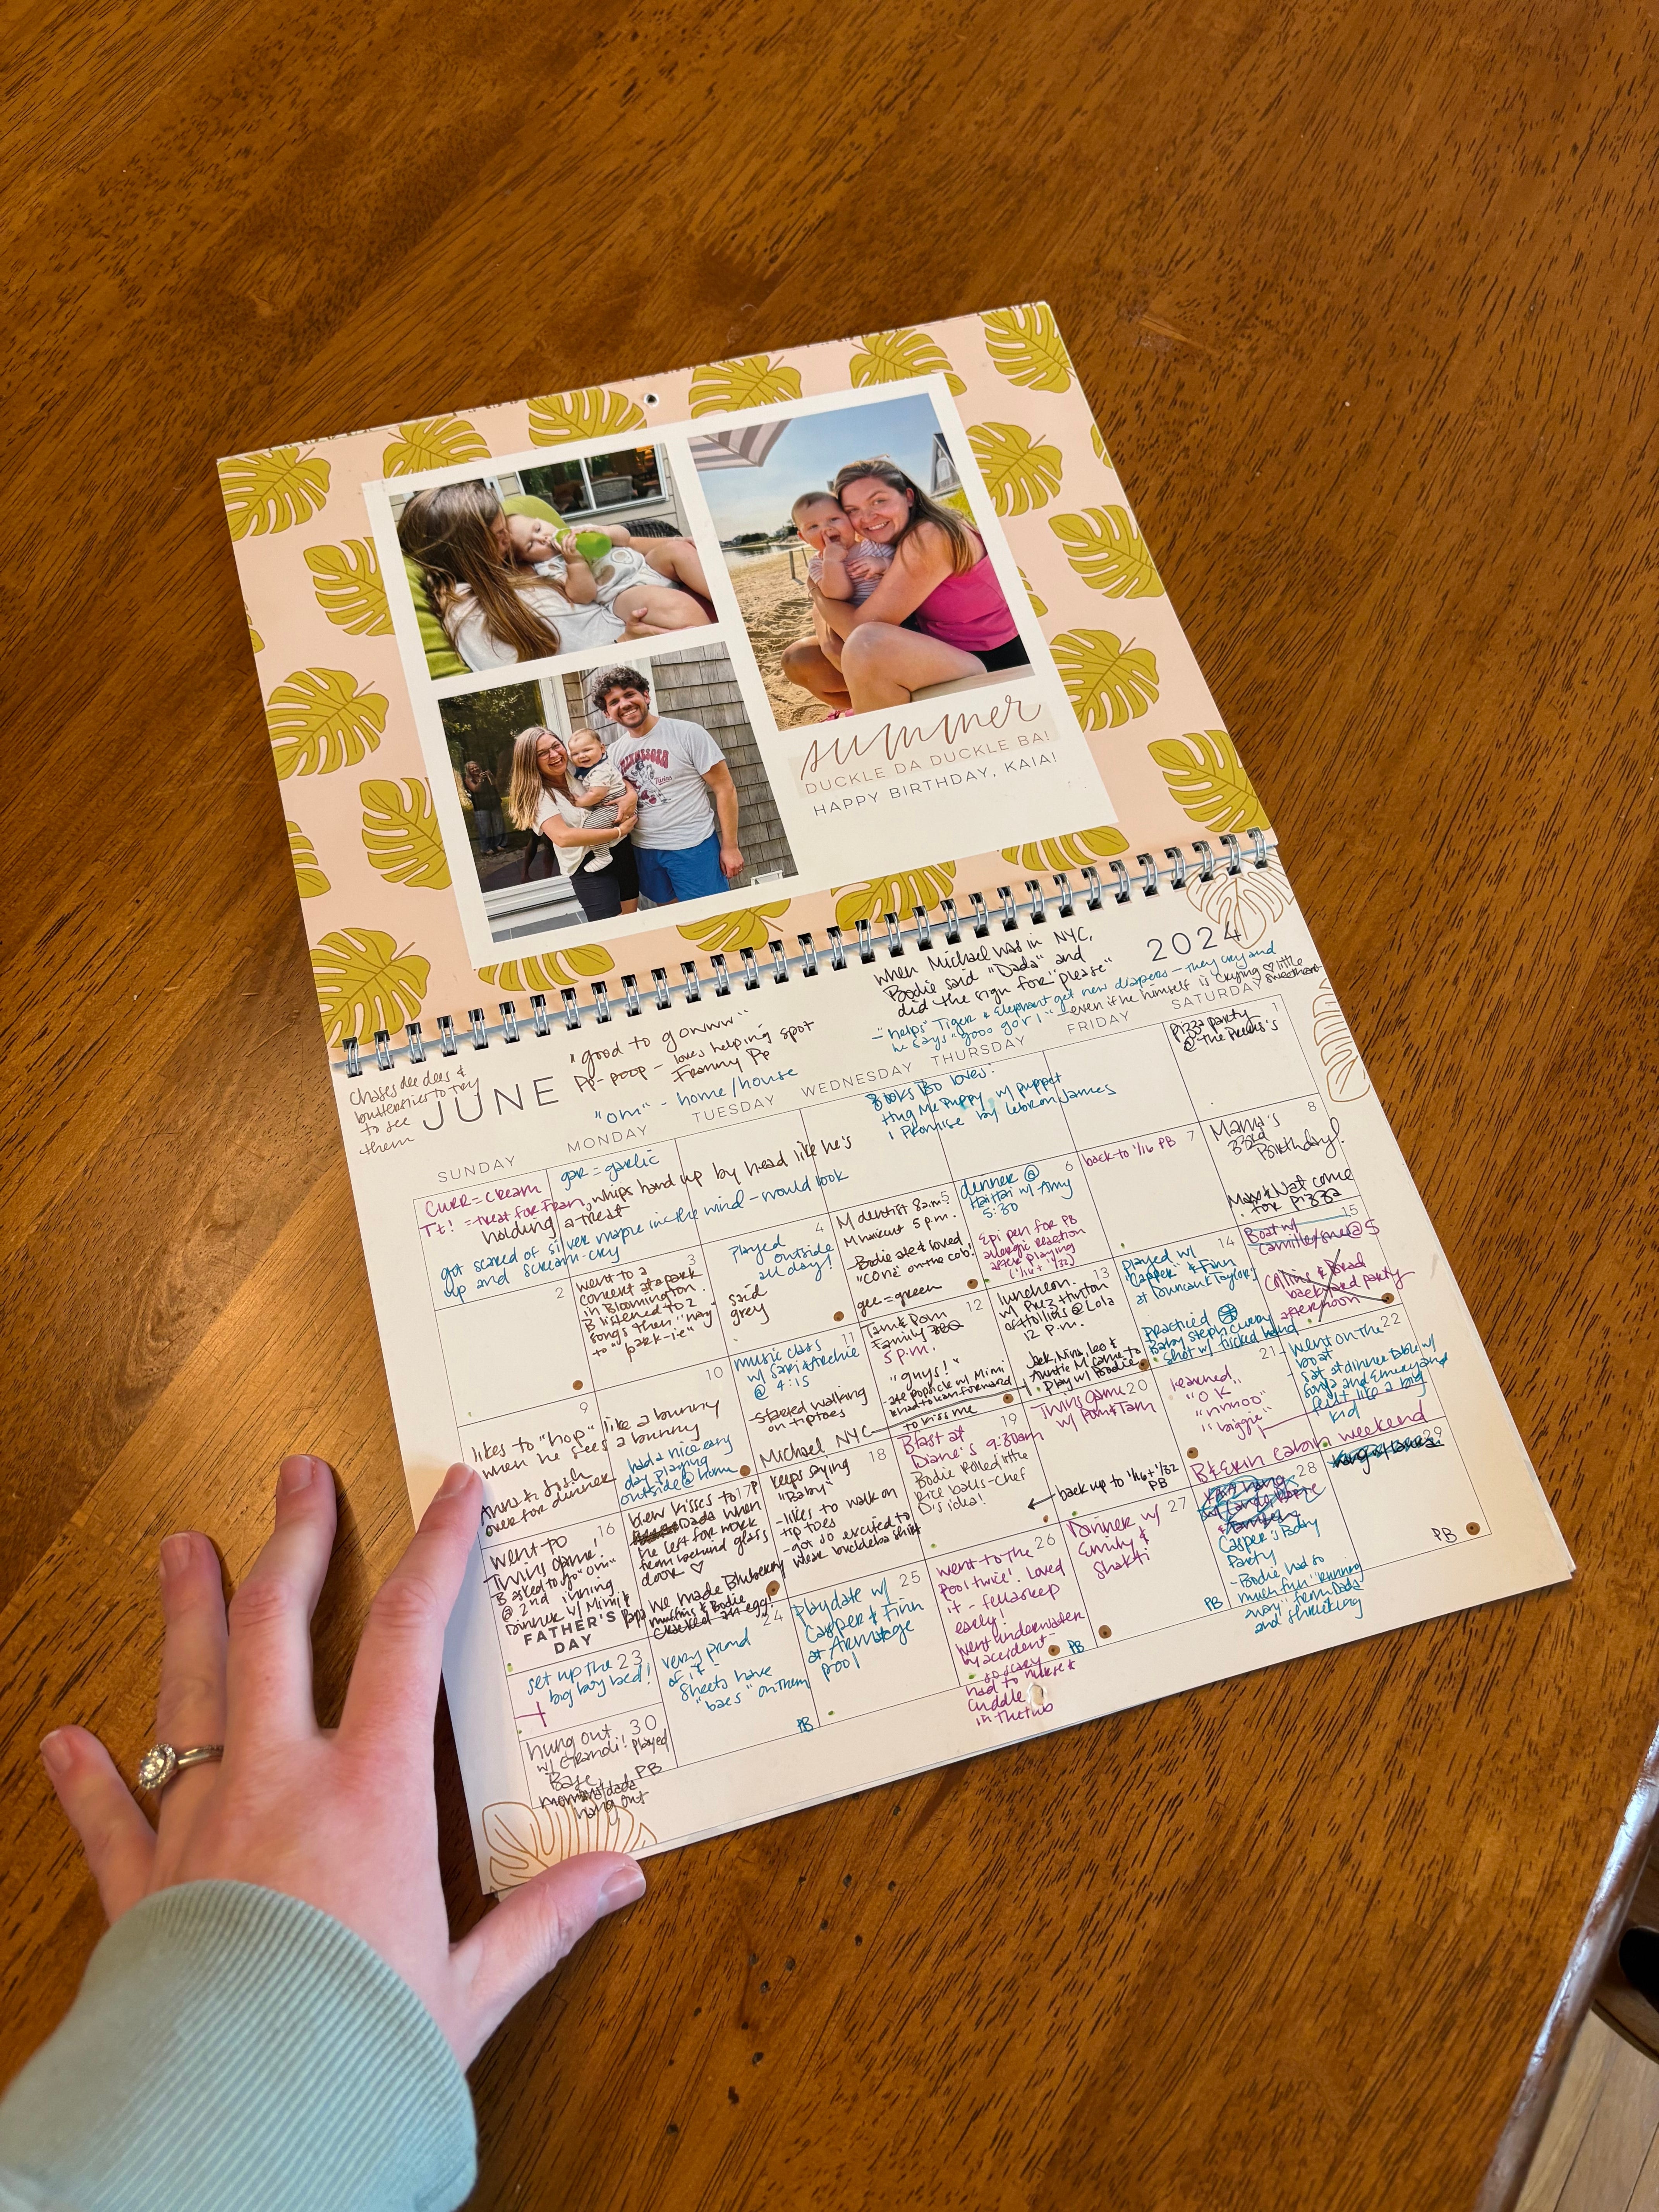 MINNESOTA
Twins
summer
DUCKLE DA DUCKLE BA!
HAPPY BIRTHDAY, KAIA!
2024
when Michael was in NYC,
Bodie said "Dada" and
did the sign for "please"
- "helps" Tiger & Elephant get new diapers - they cry and
he says "gooo gorl" - even if he himself is crying ♡ little
sweetheart
"good to gowww"
PP-poop - loves helping spot
Franny PP
"om" - home/house
chases dee dees &
butterflies to try
to see
them
JUNE
Books Bo loves:
Hug Me Puppy w/ puppet
I Promise by Lebron James
SUNDAY MONDAY TUESDAY WEDNESDAY THURSDAY FRIDAY SATURDAY
curr = cream
gar = garlic
Tt! = treat for Fran, whips hand up by head like he's
holding a treat
got scared of silver maple in the wind - would look
up and scream-cry
1
pizza party
@ the
2
3
went to a
concert at a park
in Bloomington.
B listened to 2
songs then "nay"
to "park-ie"
4
played
outside
all day!
said
grey
5
M dentist 8 a.m.
M haircut 5 p.m.
- Bodie ate & loved
"cone" on the cob!
gee = green
6
dinner @
Hai Hai w/ Amy
5:30
Epi pen for PB
allergic reaction
after playing
(1/16 + 1/32)
7
back to 1/16 PB
8
Mama's
33rd
Birthday!
Max & Nat come
for pizza
9
likes to "hop" like a bunny
when he sees a bunny
Anna & Josh
over for dinner
10
had a nice easy
day playing
outside @ home
11
music class
w/ Sari & Archie
@ 4:15
- started walking
on tiptoes
Michael NYC
12
Tam & Pom
Family BBQ
5 p.m.
"guys!"
- ate popsicle w/ Mimi
& had to lean forward
to kiss me
13
luncheon
w/ Prez Hinton
of Hollins @ Lola
12 p.m.
Jack, Nina, Leo &
Auntie M came to
play w/ Bodie
14
played w/
Casper & Finn
at Duncan & Taylor's
practiced
Baby Steph Curry
shot w/ flicked hand
15
Boat w/
Camille/
Collins & Brad
backyard party
afternoon
16
went to
Twins game!
B asked to go "om"
@ 2nd inning
Dinner w/ Mimi &
Papa
FATHER'S
DAY
17
blew kisses to
Dada when
he left for work
from behind glass
door ♡
we made Blueberry
muffins & Bodie
cracked an egg!
18
keeps saying
"Baby"
- likes to walk on
tip toes
- got so excited to
wear buckleba shirt
19
Blast at
Diane's 9:30am
Bodie rolled little
rice balls - chef
D's idea!
20
Twins Game
w/ Pom & Tam
back up to 1/16 + 1/32
PB
21
learned..
"OK
"nnnoo"
"biggie"
B & Erin cabin weekend
22
- went on the
boat
- sat at dinner table w/
Sonja and Emery and
felt like a big
kid
23
set up the
big boy bed!
24
very proud
of it -
sheets have
"baes" on them
PB
25
playdate w/
Casper & Finn
at Armitage
pool
26
went to the
pool twice! Loved
it - fell asleep
early!
went underwater
by accident -
so scary
had to nurse &
cuddle
in the tub
PB
27
Dinner w/
Emily &
Shakti
PB
28
Casper's Bday
Party
- Bodie had so
much fun "running
away" from Dada
and shrieking
29
PB
30
hung out
w/ Grandi! Played
Base,
mama/dada
hang out
PB